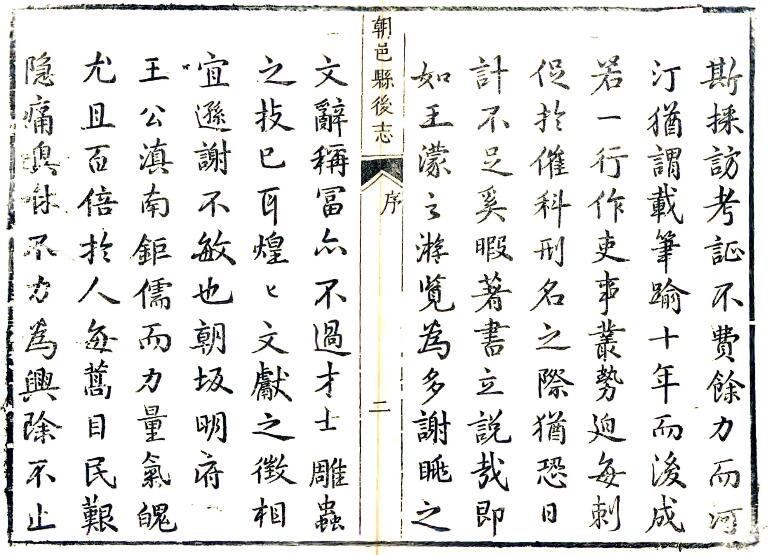 斯採訪考証不費餘力而河
汀猶謂載筆踰十年而後成
若一行作吏事叢勢迫每刺
促扵催科刑名之際猶恐日
計不足奚暇著書立說哉即
如王濛之游覧為多謝眺之
朝邑縣後志
序
二
文辭稱冨亦不過才士雕蟲
之技已耳煌〻文獻之徴相
宜遜謝不敏也朝坂明府
王公滇南鉅儒而力量氣魄
尤且百倍扵人每蒿目民艱
隐痛與休不力為興除不止